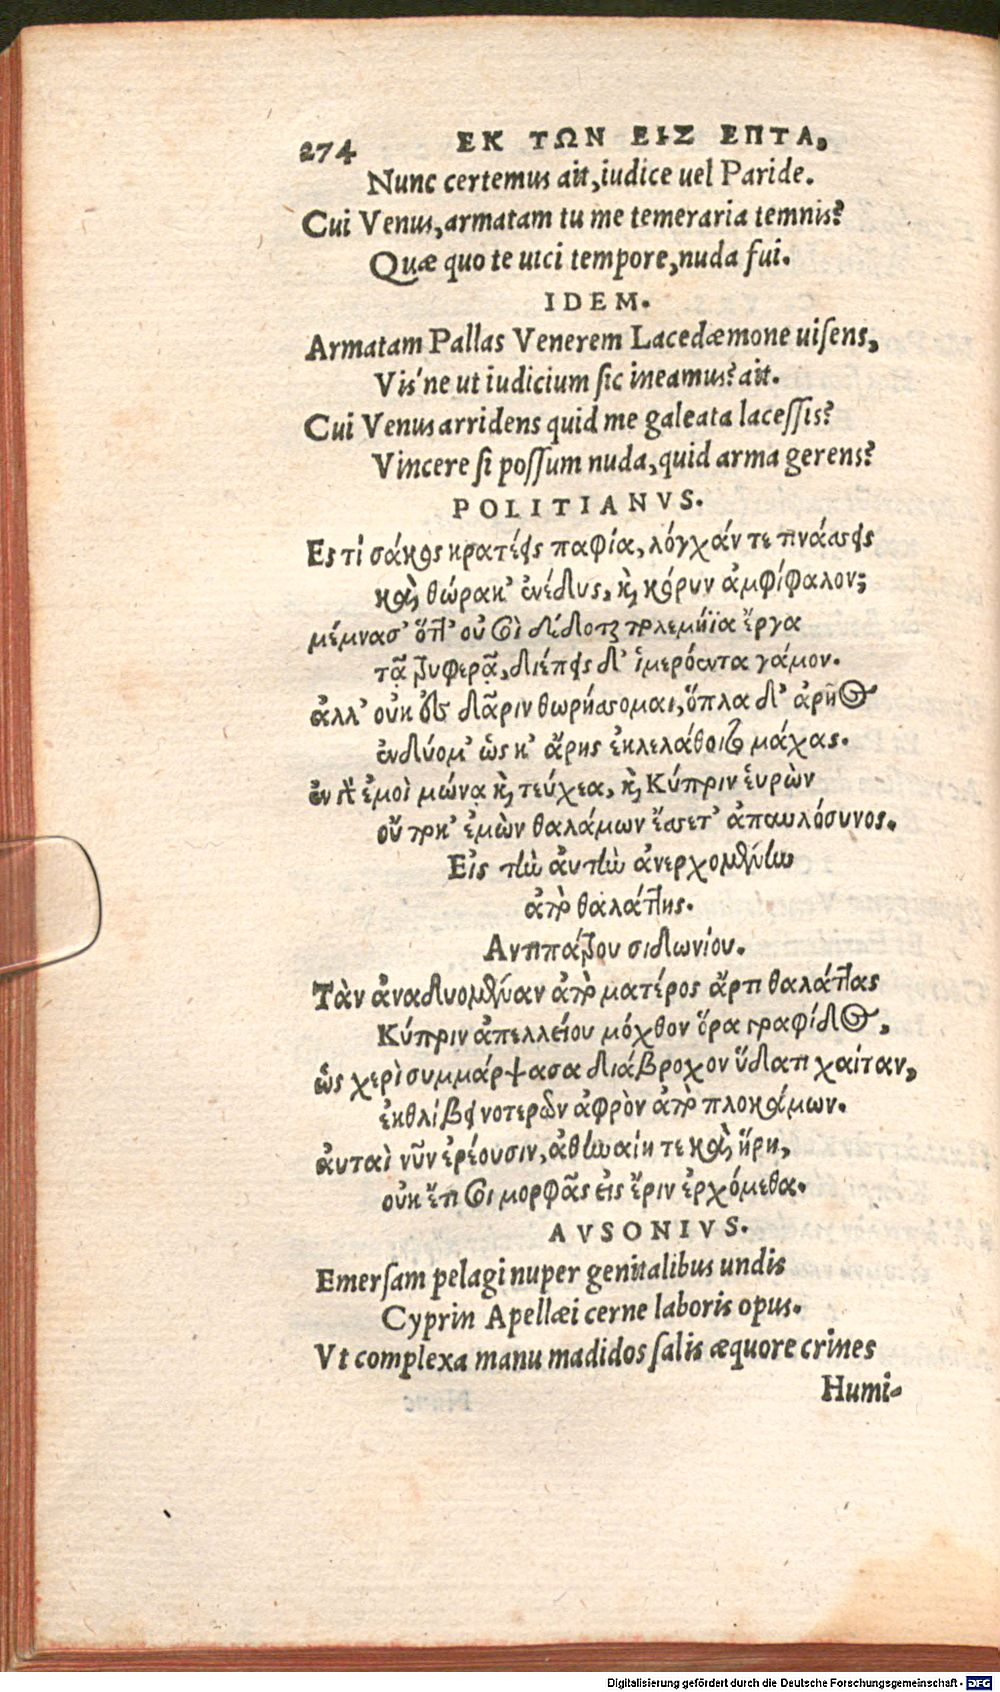 274 ΕΚ ΤΩΝ ΕΙΣ ΕΠΤΑ,
Nunc certemus ait, iudice uel Paride.
Cui Venus, armatam tu me temeraria temnis?
Quæ quo te uici tempore, nuda fui.
IDEM.
Armatam Pallas Venerem Lacedæmone uiſens,
Viſ'ne ut iudicium ſic ineamus? ait.
Cui Venus arridens quid me galeata laceſſis?
Vincere ſi poſſum nuda, quid arma gerens?
POLITIANVS.
Εσ τί σάκος κρατέεις παφία, λόγχάν τε τινάσσεις
καὶ θώρακ' ἐνέδυς, καὶ κόρυν ἀμφίφαλον;
μέμνασ' ὅττ' οὐ σοὶ δέδοται πολεμήϊα ἔργα
τᾷ τρυφερᾷ, διέπεις δ' ἱμερόεντα γάμον.
ἀλλ' οὐκ δᾶριν θωρήσσομαι, ὅπλα δ' ἀρῆος
ἐνδύομ' ὥς κ' ἄρης ἐκλελάθοιτο μάχας.
ἐν δ' ἐμοὶ μώνᾳ καὶ τεύχεα, καὶ Κύπριν εὑρὼν
οὔ ποκ' ἐμῶν θαλάμων ἔσσετ' ἀπαυλόσυνος.
Εἰς τὴν ἀυτὴν ἀνερχομένην
ἀπὸ θαλάττης.
Αντιπάτρου σιδωνίου.
Τὰν ἀναδυομέναν ἀπὸ ματέρος ἄρτι θαλάττας
Κύπριν ἀπελλείου μόχθον ὅρα γραφίδος,
ὡς χερὶ συμμάρψασα διάβροχον ὕδατι χαίταν,
ἐκθλίβει νοτερῶν ἀφρὸν ἀπὸ πλοκάμων.
ἀυταὶ νῦν ἐρέουσιν, ἀθηναίη τε καὶ ἥρη,
οὐκ ἔτι σοι μορφᾶς εἰς ἔριν ἐρχόμεθα.
AVSONIVS.
Emerſam pelagi nuper genitalibus undis
Cyprin Apellæi cerne laboris opus.
Vt complexa manu madidos ſalis æquore crines
Humi-
Digitalisierung gefördert durch die Deutsche Forschungsgemeinschaft - DFG